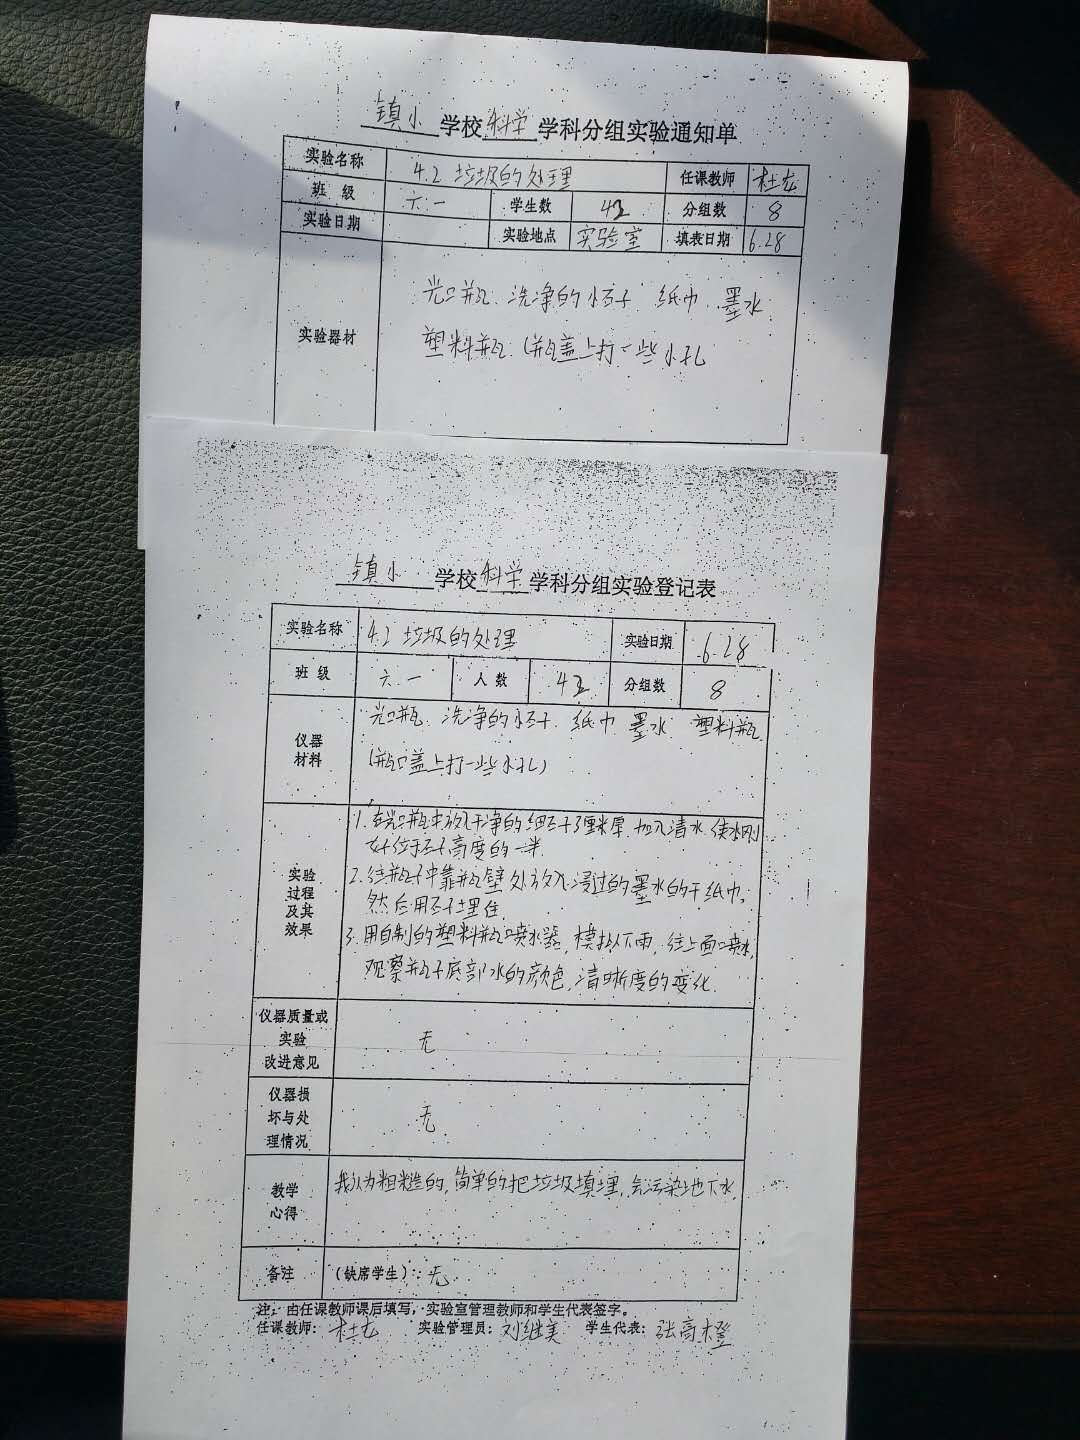 镇小 学校 科学 学科分组实验通知单
实验名称 4.2 垃圾的处理 任课教师 杜龙
班 级 六.一 学生数 42 分组数 8
实验日期 实验地点 实验室 填表日期 6.28
实验器材
光口瓶 洗净的小石子 纸巾 墨水
塑料瓶(瓶盖上打一些小孔
镇小 学校 科学 学科分组实验登记表
实验名称 4.2 垃圾的处理 实验日期 6.28
班 级 六.一 人 数 42 分组数 8
仪器
材料
光口瓶 洗净的小石子 纸巾 墨水 塑料瓶
(瓶口盖上打一些小孔)
实验
过程
及其
效果
1.在光口瓶中放入干净的细石子3厘米厚,加入清水,使水刚
好位于石子高度的一半
2.往瓶子中靠瓶壁处放入浸过的墨水的干纸巾,
然后用石子埋住
3.用自制的塑料瓶喷水器,模拟下雨,往上面喷水,
观察瓶子底部水的颜色,清晰度的变化.
仪器质量或
实验
改进意见
无
仪器损
坏与处
理情况
无
教学
心得
我认为粗糙的,简单的把垃圾填埋,会污染地下水,
备注 (缺席学生):无
注:由任课教师课后填写,实验室管理教师和学生代表签字。
任课教师: 杜龙 实验管理员: 刘继美 学生代表: 张高橙